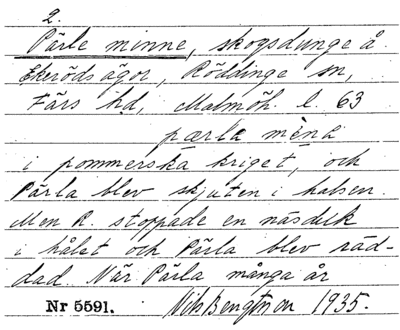 2.
Pärle minne, skogsdunge å
Ekeröds ägor, Röddinge sn,
Färs hd, Malmöh. l. 63
pærla mèna
i pommerska kriget, och
Pärla blev skjuten i halsen.
Men R. stoppade en näsduk
i hålet och Pärla blev räd-
dad. När Pärla många år
Nr 5591. Nils Bengtsson 1935.